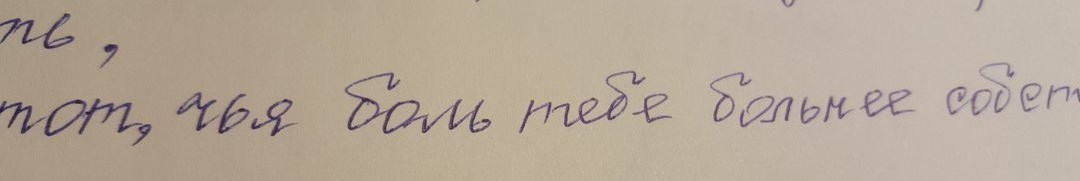 ть,
тот, чья боль тебе больнее собст